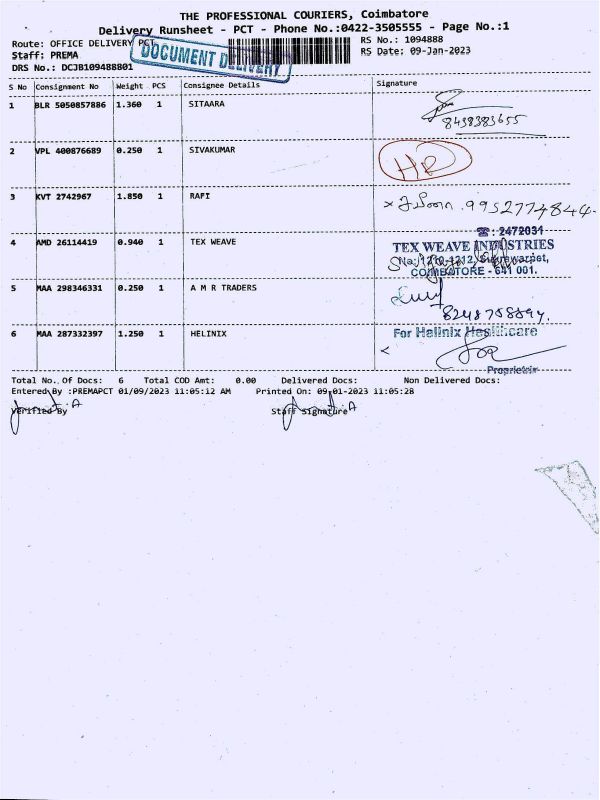 THE PROFESSIONAL COURIERS, Coimbatore
Delivery Runsheet - PCT - Phone No.:0422-3505555 - Page No.:1
Route: OFFICE DELIVERY PCT
RS No.: 1094888
Staff: PREMA
RS Date: 09-Jan-2023
DRS No.: DCJB109488801
DOCUMENT DELIVERY
S No Consignment No Weight PCS Consignee Details Signature
1 BLR 5050857886 1.360 1 SITAARA
8438383655
2 VPL 400876689 0.250 1 SIVAKUMAR
HR
3 KVT 2742967 1.850 1 RAFI
9952774844
☎: 2472031
4 AMD 26114419 0.940 1 TEX WEAVE TEX WEAVE INDUSTRIES
COIMBATORE - 641 001.
5 MAA 298346331 0.250 1 A M R TRADERS
6 MAA 287332397 1.250 1 HELINIX For Helinix Healthcare
Proprietrix
Total No. Of Docs: 6 Total COD Amt: 0.00 Delivered Docs: Non Delivered Docs:
Entered By :PREMAPCT 01/09/2023 11:05:12 AM Printed On: 09-01-2023 11:05:28
Verified By Staff Signature